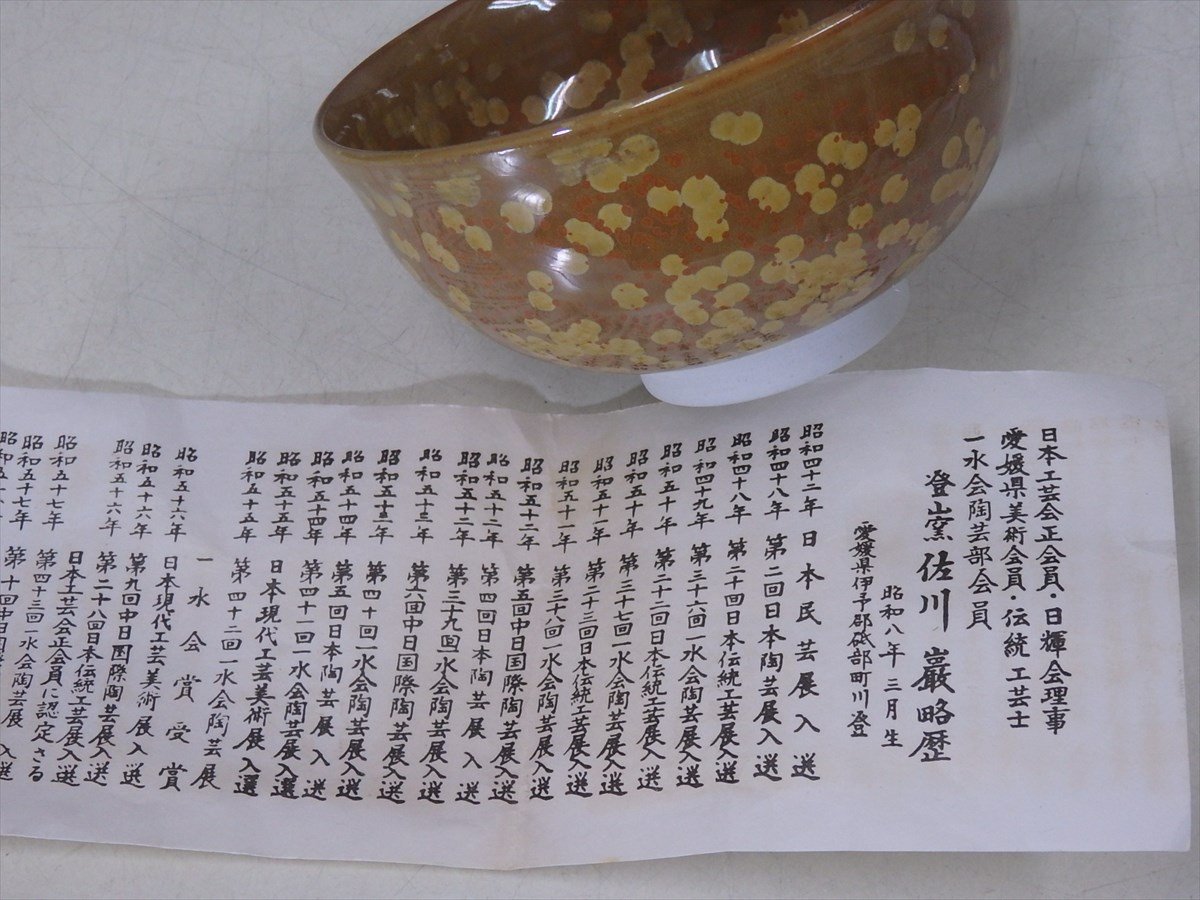 日本工芸会正会員・日輝会理事
愛媛県美術会員・伝統工芸士
一水会陶芸部会員
登窯 佐川 巖略歴
昭和八年三月生
愛媛県伊予郡砥部町川登
昭和四十二年 日本民芸展入選
昭和四十八年 第二回日本陶芸展入選
昭和四十八年 第二十回日本伝統工芸展入選
昭和四十九年 第三十六回一水会陶芸展入選
昭和五十年 第二十二回日本伝統工芸展入選
昭和五十年 第三十七回一水会陶芸展入選
昭和五十一年 第二十三回日本伝統工芸展入選
昭和五十一年 第三十八回一水会陶芸展入選
昭和五十二年 第五回中日国際陶芸展入選
昭和五十二年 第四回日本陶芸展入選
昭和五十二年 第三十九回一水会陶芸展入選
昭和五十三年 第六回中日国際陶芸展入選
昭和五十三年 第四十回一水会陶芸展入選
昭和五十四年 第五回日本陶芸展入選
昭和五十四年 第四十一回一水会陶芸展入選
昭和五十五年 日本現代工芸美術展入選
昭和五十五年 第四十二回一水会陶芸展
一水会賞受賞
昭和五十六年 日本現代工芸美術展入選
昭和五十六年 第九回中日国際陶芸展入選
昭和五十六年 第二十八回日本伝統工芸展入選
昭和五十七年 日本工芸会正会員に認定さる
昭和五十七年 第四十三回一水会陶芸展入選